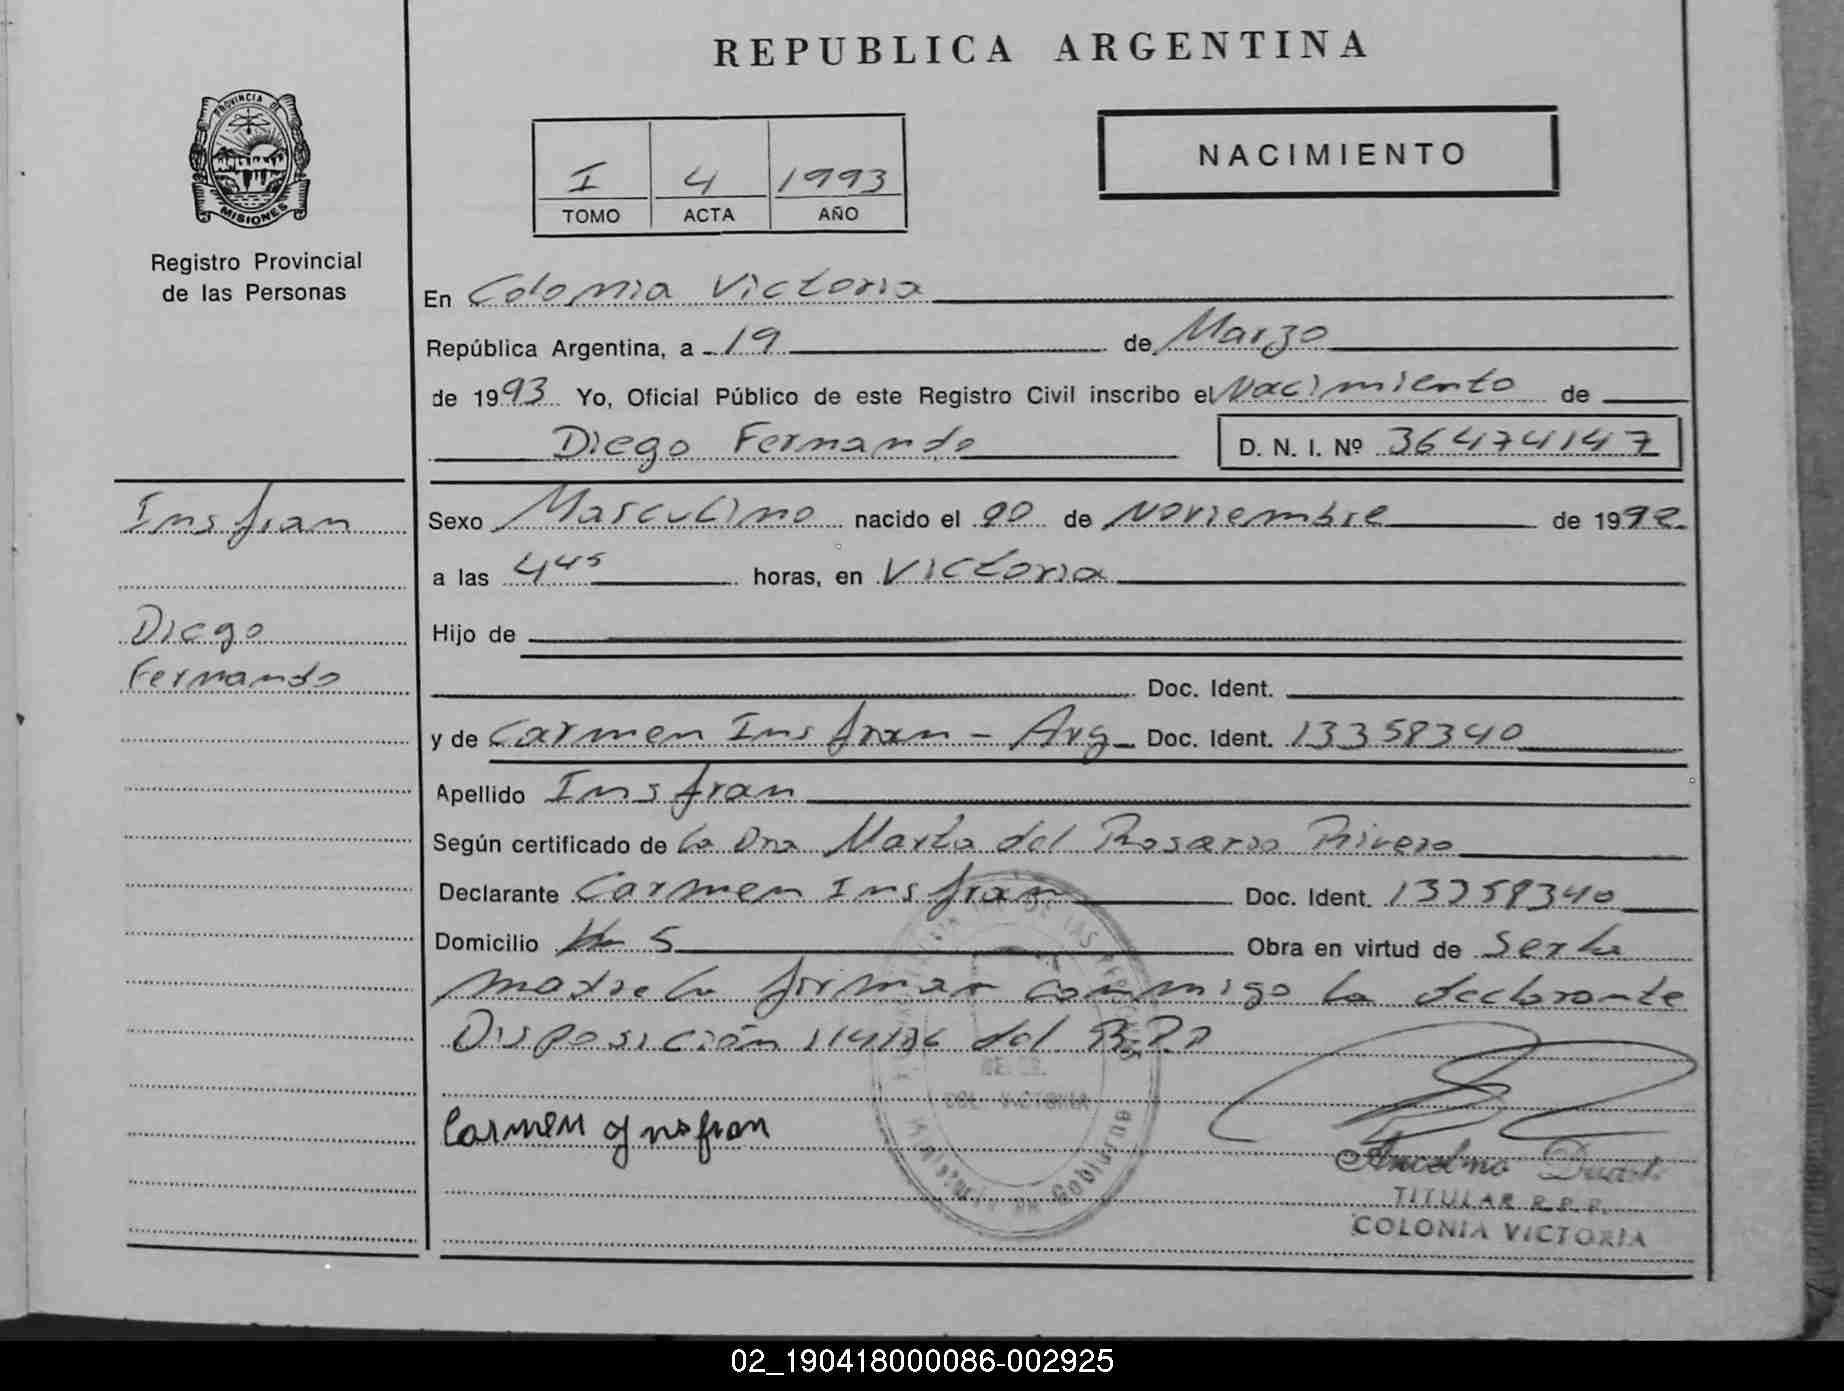 REPUBLICA ARGENTINA
PROVINCIA DE
MISIONES
Registro Provincial
de las Personas
I 4 1993
TOMO ACTA AÑO
NACIMIENTO
En Colonia Victoria
República Argentina, a 19 de Marzo
de 1993 Yo, Oficial Público de este Registro Civil inscribo el Nacimiento de
Diego Fernando D. N. I. Nº 36474147
Insfran
Diego
Fernando
Sexo Masculino nacido el 20 de Noviembre de 1992
a las 4 45 horas, en Victoria
Hijo de
Doc. Ident.
y de Carmen Insfran - Arg Doc. Ident. 13358340
Apellido Insfran
Según certificado de la Dra Marta del Rosario Rivero
Declarante Carmen Insfran Doc. Ident. 13358340
Domicilio 5 Obra en virtud de Ser la
madre la firman conmigo la declarante
Disposición del R.P.P
COL. VICTORIA
Carmen Ynsfran
Ancelmo Duarte
TITULAR R.P.P.
COLONIA VICTORIA
02_190418000086-002925